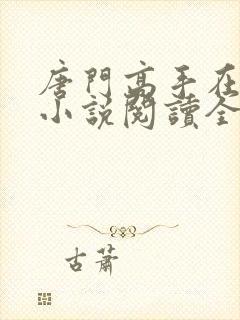 唐門高手在
小説閱讀全
古蕭